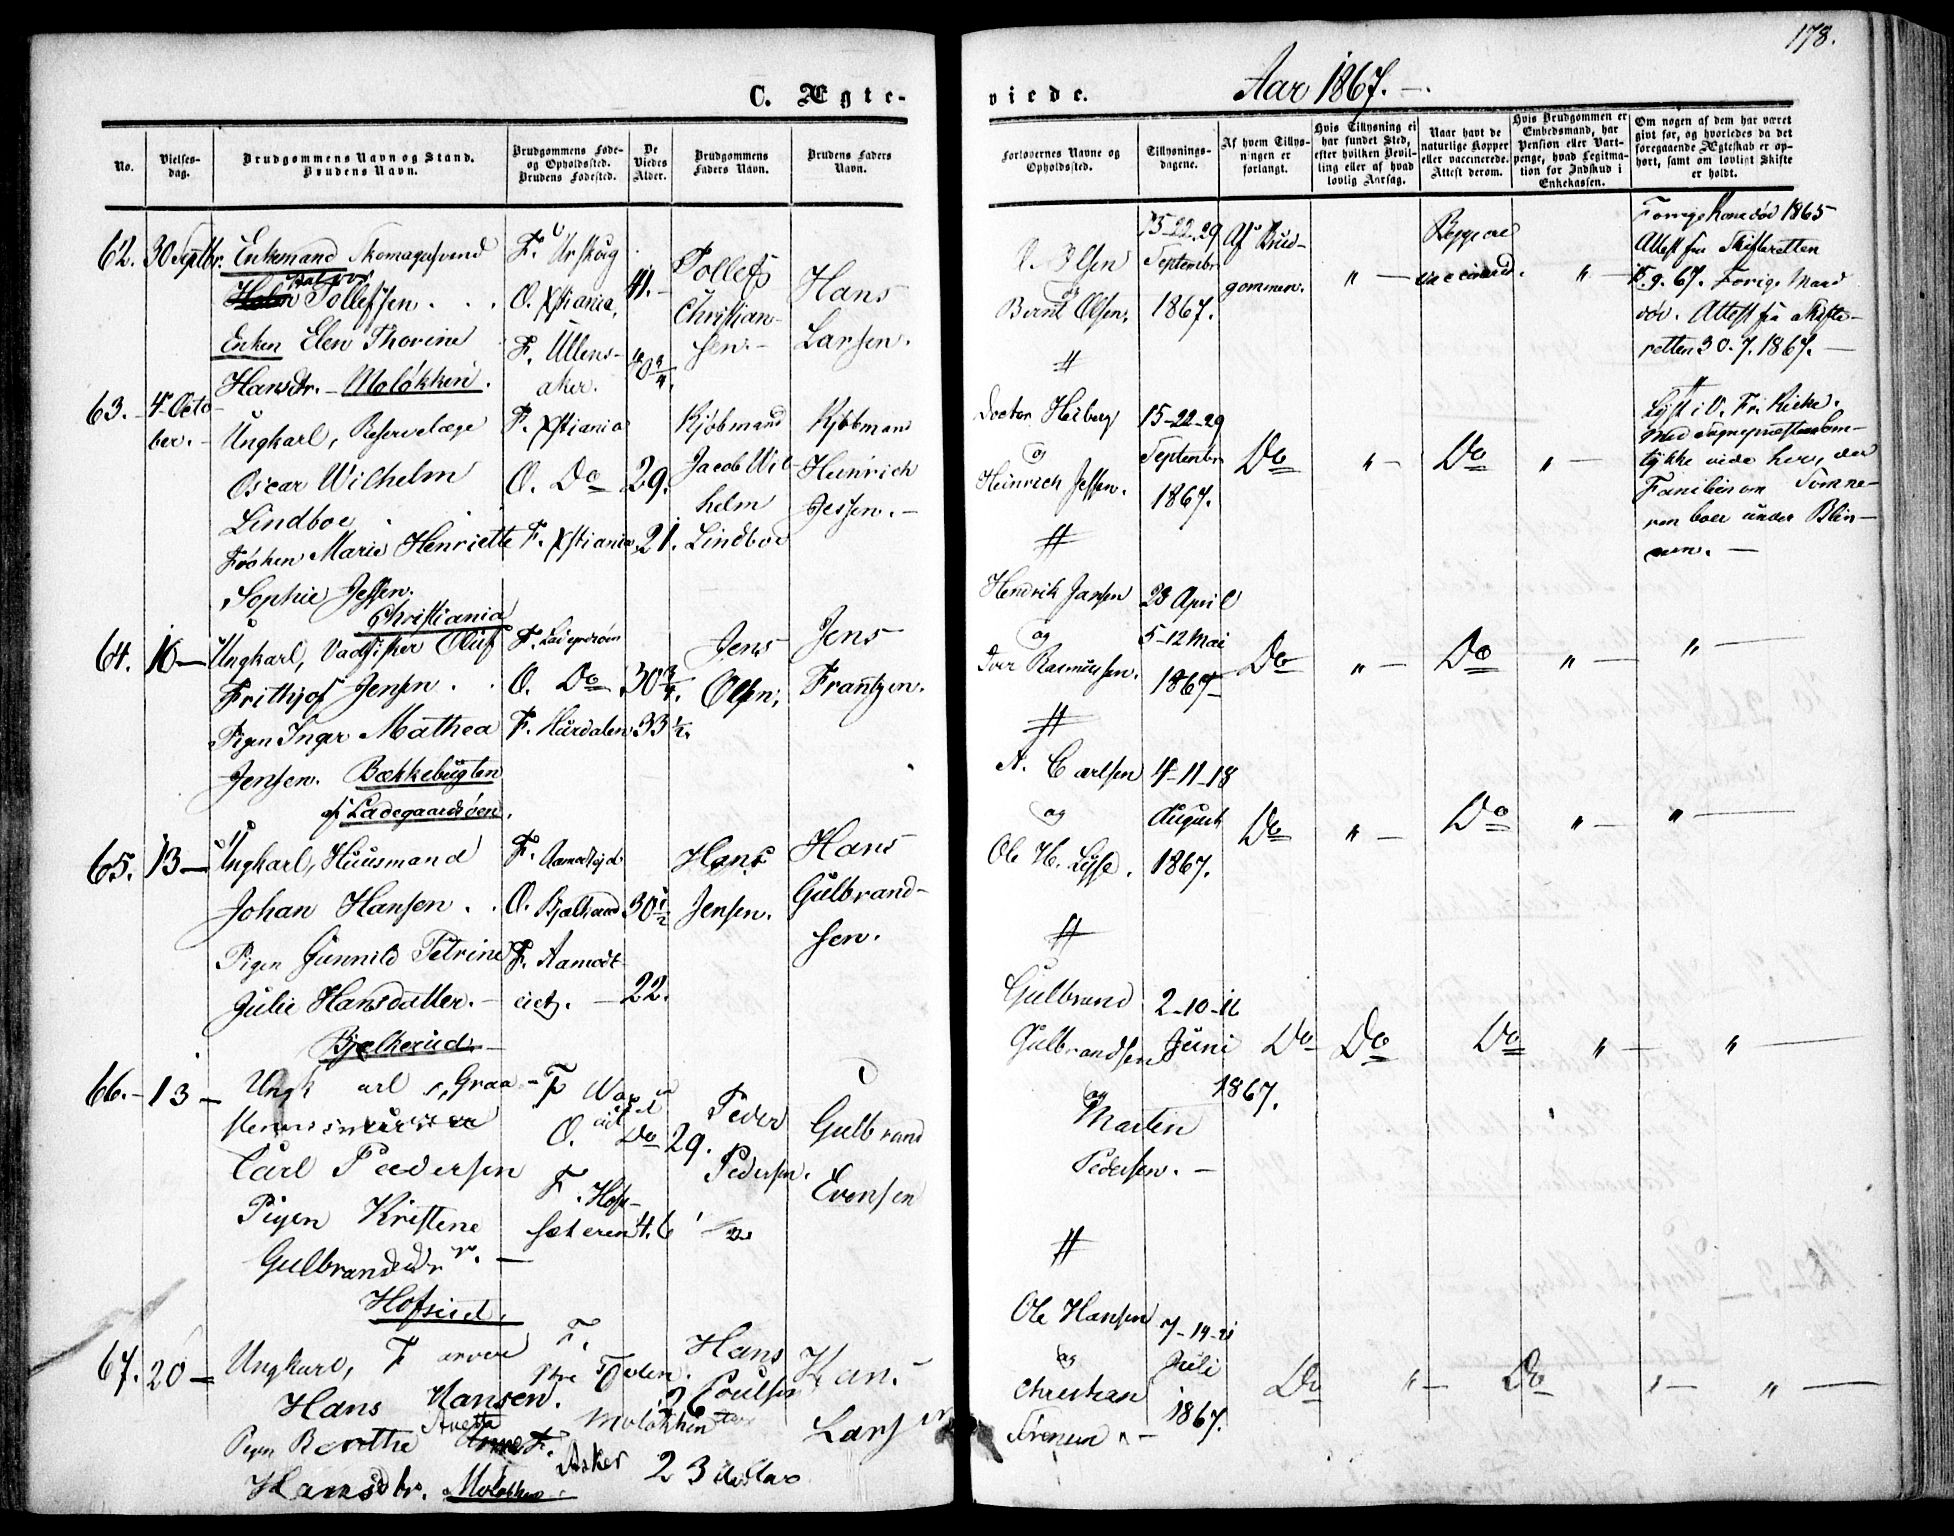 178.
C. Ægte-
viede.
Aar 1867.
No.
Vielses-
dag.
Brudgommens Navn og Stand.
Brudens Navn.
Brudgommens Føde-
og Opholdssted.
Brudens Fødested.
De
Viedes
Alder.
Brudgommens
Faders Navn.
Brudens Faders
Navn.
Forlovernes Navne og
Opholdssted.
Tillysnings-
dagene.
Af hvem Tillys-
ningen er
forlangt.
Hvis Tillysning ei
har fundet Sted,
efter hvilken Bevil-
ling eller af hvad
lovlig Aarsag.
Naar havt de
naturlige Kopper
eller vaccinerede.
Attest derom.
Hvis Brudgommen er
Embedsmand, har
Pension eller Vart-
penge, hvad Legitima-
tion for Indskud i
Enkekassen.
Om nogen af dem har været
givt før, og hvorledes da det
foregaaende Ægteskab er op-
hørt, samt om lovligt Skifte
er holdt.
62. 30 Septbr. Enkemand Skomagersvend
Tollefsen
Enken Elen Thorine
Hansdr. - Moløkken.
F. Urskoug
O. Xstiania,
F. Ullens-
aker.
41.
40 3/4.
Tollef
Christian-
sen.
Hans
Larsen.
Olsen
og
Bernt Olsen.
15-22-29
September
1867.
Af Brud-
gommen.
" -
Begge ere
vaccinered.
" -
Forrige Kone død 1865
Attest fra Skifteretten
9. 67. Forrige Mand
død. Attest fra Skifte-
retten 30. 7. 1867. -
63. 4 Octo-
ber. -
Ungkarl, Reservelæge
Oscar Wilhelm
Lindboe
Frøken Marie Henriette
Sophie Jessen.
Christiania
F. Xstiania
O. Do
F. Xstiania
29.
21.
Kjøbmand
Jacob Wil-
helm
Lindboe
Kjøbmand
Heinrich
Jessen. -
Doctor Heiberg
og
Heinrich Jessen.
15-22-29
September
1867.
Do
" -
Do
" -
Lyst i V. Fr. Kirke.
Med Sognepræstens Sam-
tykke viede her, da
Familien om Somme-
ren boer under Blin-
dern. -
64. 10 - Ungkarl, Oluf
Frithjof Jensen
Pigen Inger Mathea
Jensen. Bækkebugten
af Ladegaardsøen.
O. Do
F. Hurdalen
30 3/4.
33 1/2.
Jens
Olsen.
Jens
Frantzen.
Hendrik Jansen
og
Iver Rasmussen.
28 April
5-12 Mai
1867
Do
" -
Do
" -
" -
65. 13 - Ungkarl, Huusmand
Johan Hansen
Pigen Gunnild Petrine
Julie Hansdatter. -
Bjælkerud. -
F. Aamodteid
O. Bjælkerud
F. Aamodt-
eiet. -
30 1/2
22.
Hans
Jensen.
Hans
Gulbrand-
sen.
A. Carlsen
og
Ole H. Lysse.
4-11-18
August
1867.
Do
" -
Do
" -
" -
66. - 13 -
Ungkarl, Graa-
Carl Pedersen
Pigen Kristene
Gulbrandsdr. -
O. Do
F. Hof-
sæteren
29.
46 1/2
Peder
Pedersen.
Gulbrand
Evensen
Gulbrand
Gulbrandsen
og
Martin
Pedersen. -
2-10-16
Juni
1867.
Do
Do
Do
" -
" -
67. 20 -
Ungkarl, Farver
Hans Hansen.
Pigen Berthe Anetta
Hansdtr. Moløkken.
F.
Moløkken
Asker
26
23
Hans
Poulsen
Hans
Larsen
Ole Hansen
og
Christian
Sørensen
7-14-21
Juli
1867.
Do
" -
Do
" -
" -